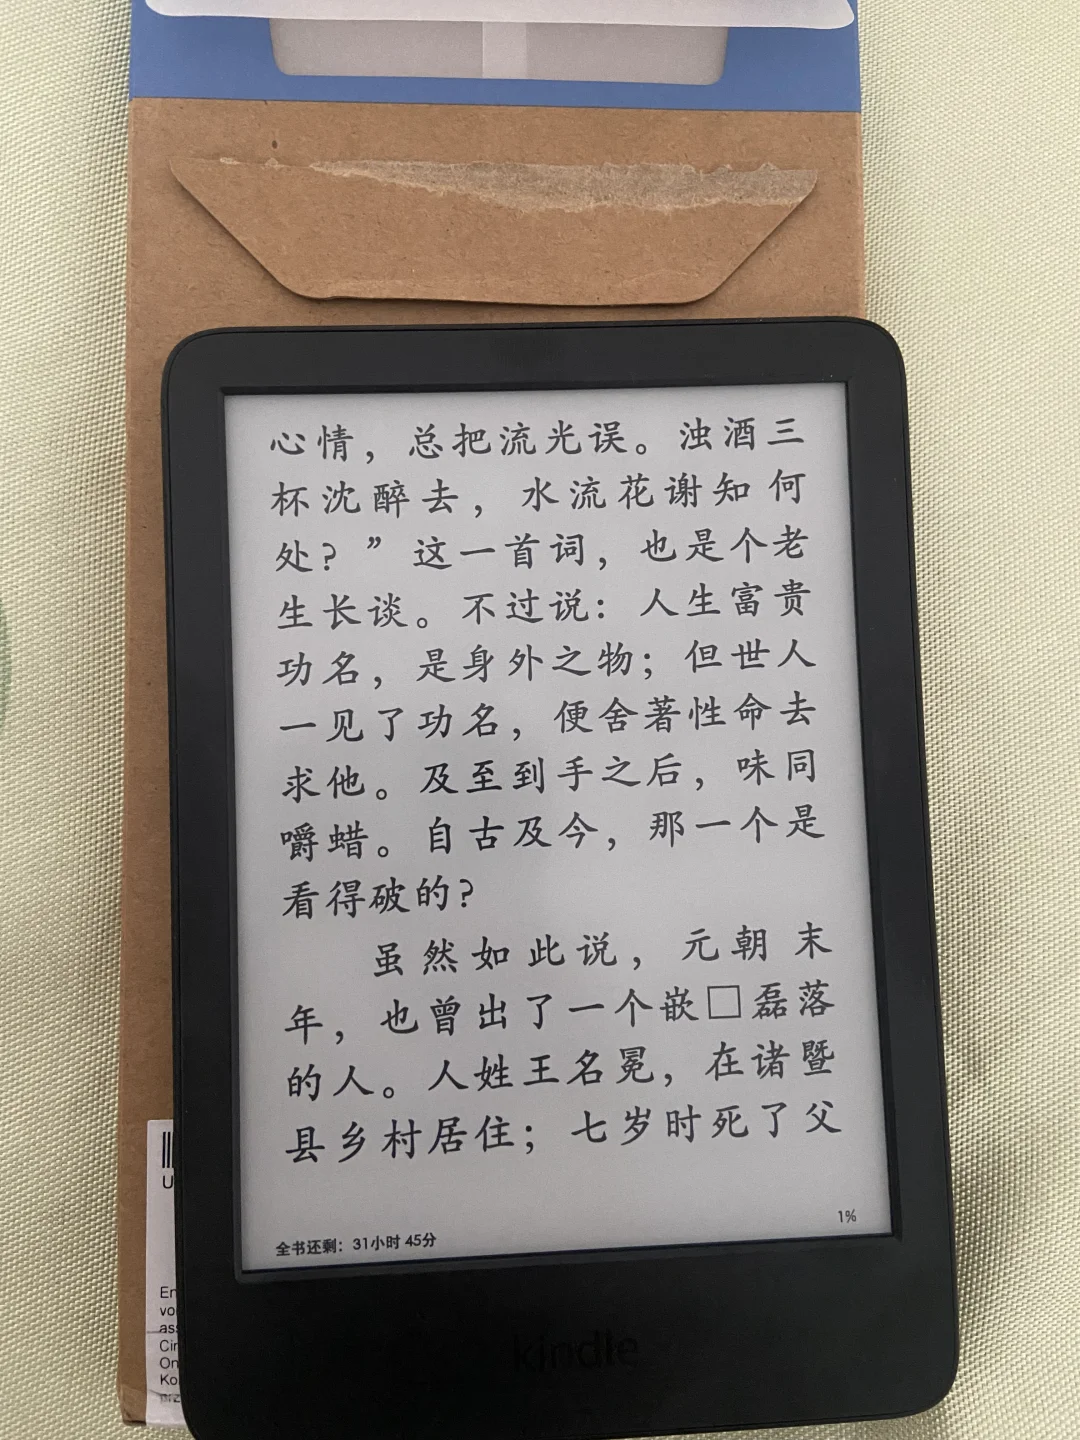 心情，总把流光误。浊酒三
杯沈醉去，水流花谢知何
处？”这一首词，也是个老
生长谈。不过说：人生富贵
功名，是身外之物；但世人
一见了功名，便舍著性命去
求他。及至到手之后，味同
嚼蜡。自古及今，那一个是
看得破的？
虽然如此说，元朝末
年，也曾出了一个嵌□磊落
的人。人姓王名冕，在诸暨
县乡村居住；七岁时死了父
1%
全书还剩：31小时 45分
kindle
U
En
vo
ass
Cin
On
Ko